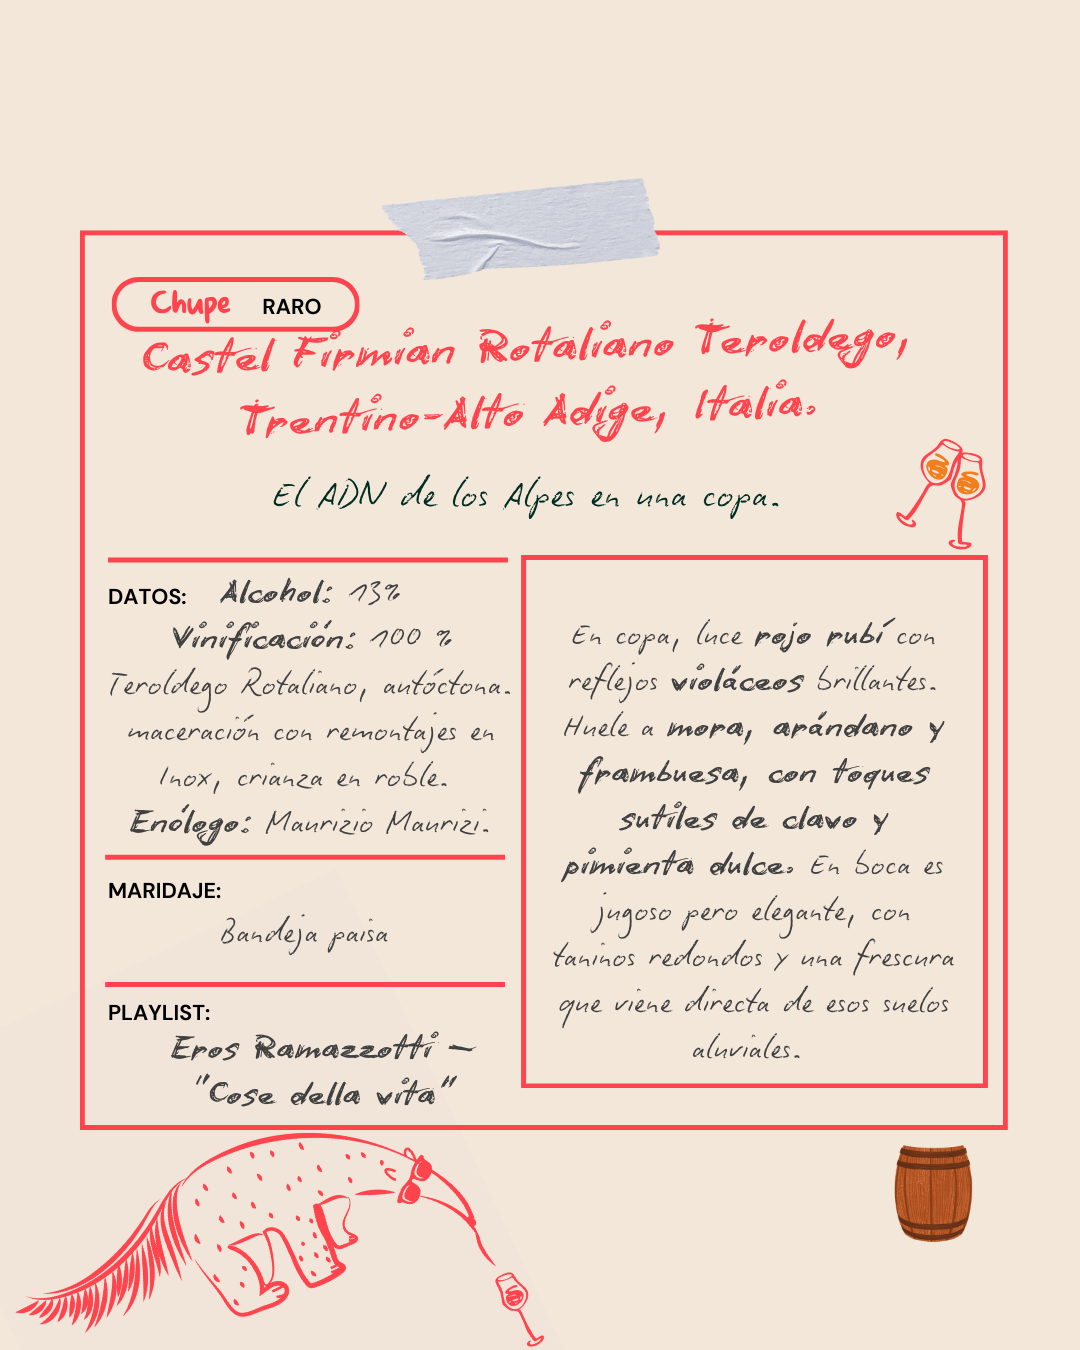 Chupe RARO
Castel Firmian Rotaliano Teroldego,
Trentino-Alto Adige, Italia.
El ADN de los Alpes en una copa.
DATOS: Alcohol: 13%
Vinificación: 100 %
Teroldego Rotaliano, autóctona.
maceración con remontajes en
Inox, crianza en roble.
Enólogo: Maurizio Maurizi.
MARIDAJE:
Bandeja paisa
PLAYLIST:
Eros Ramazzotti –
"Cose della vita"
En copa, luce rojo rubí con
reflejos violáceos brillantes.
Huele a mora, arándano y
frambuesa, con toques
sutiles de clavo y
pimienta dulce. En boca es
jugoso pero elegante, con
taninos redondos y una frescura
que viene directa de esos suelos
aluviales.